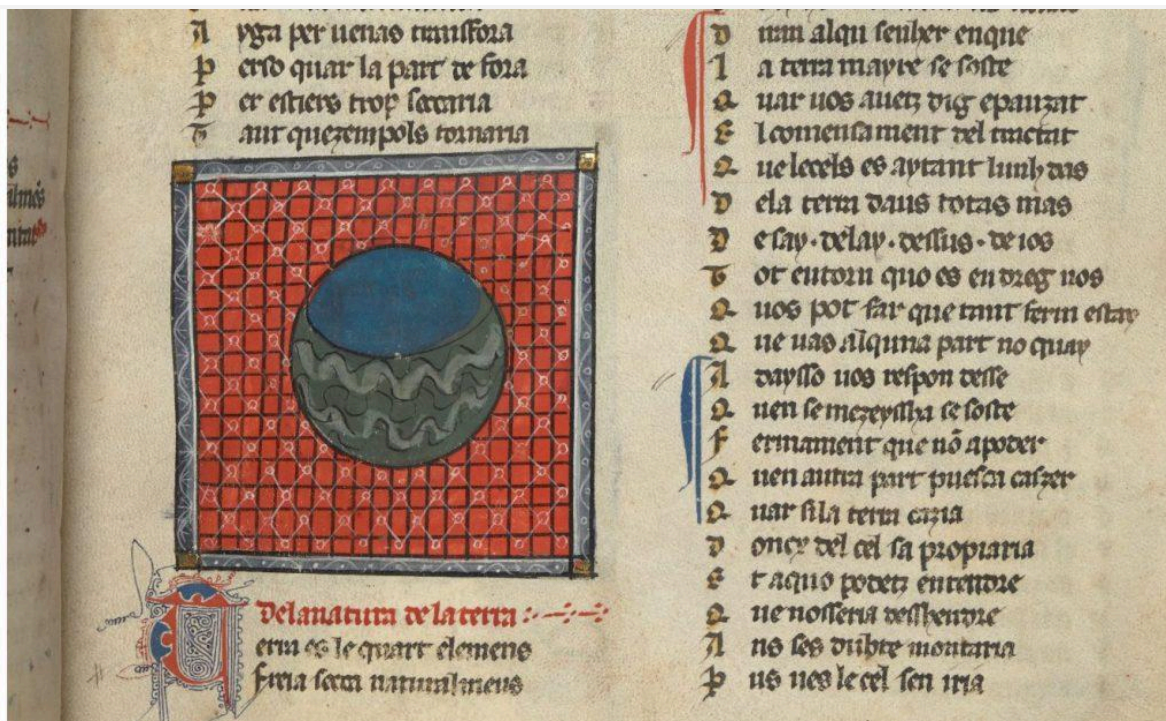 A yga per uenas transfora
P erso quar la part de fora
P er estiers trop secaria
T ant quezempols tornaria
De la natura de la terra
T erra es le quart elemens
freia seca naturalmens
D iran alqu senher enque
L a terra mayre se soste
Q uar uos auetz dig epauzat
E l comensament del tractat
Q ue lecels es aytant lunhdas
D ela terra daus totas mas
D e say · delay · dessus · de ios
T ot entorn quo es en dreg nos
Q uos pot far que tant ferm estay
Q ue uas alquna part no quay
A daysso uos respon desse
Q uen se mezeyssha se soste
F ermament que nō a poder
Q uen autra part puesca cazer
Q uar sila terra cazia
D oncx del cel sa propiaria
E t aquo podetz entendre
Q ue nosseria desshendre
A ns ses dubte montaria
P us ues le cel sen iria